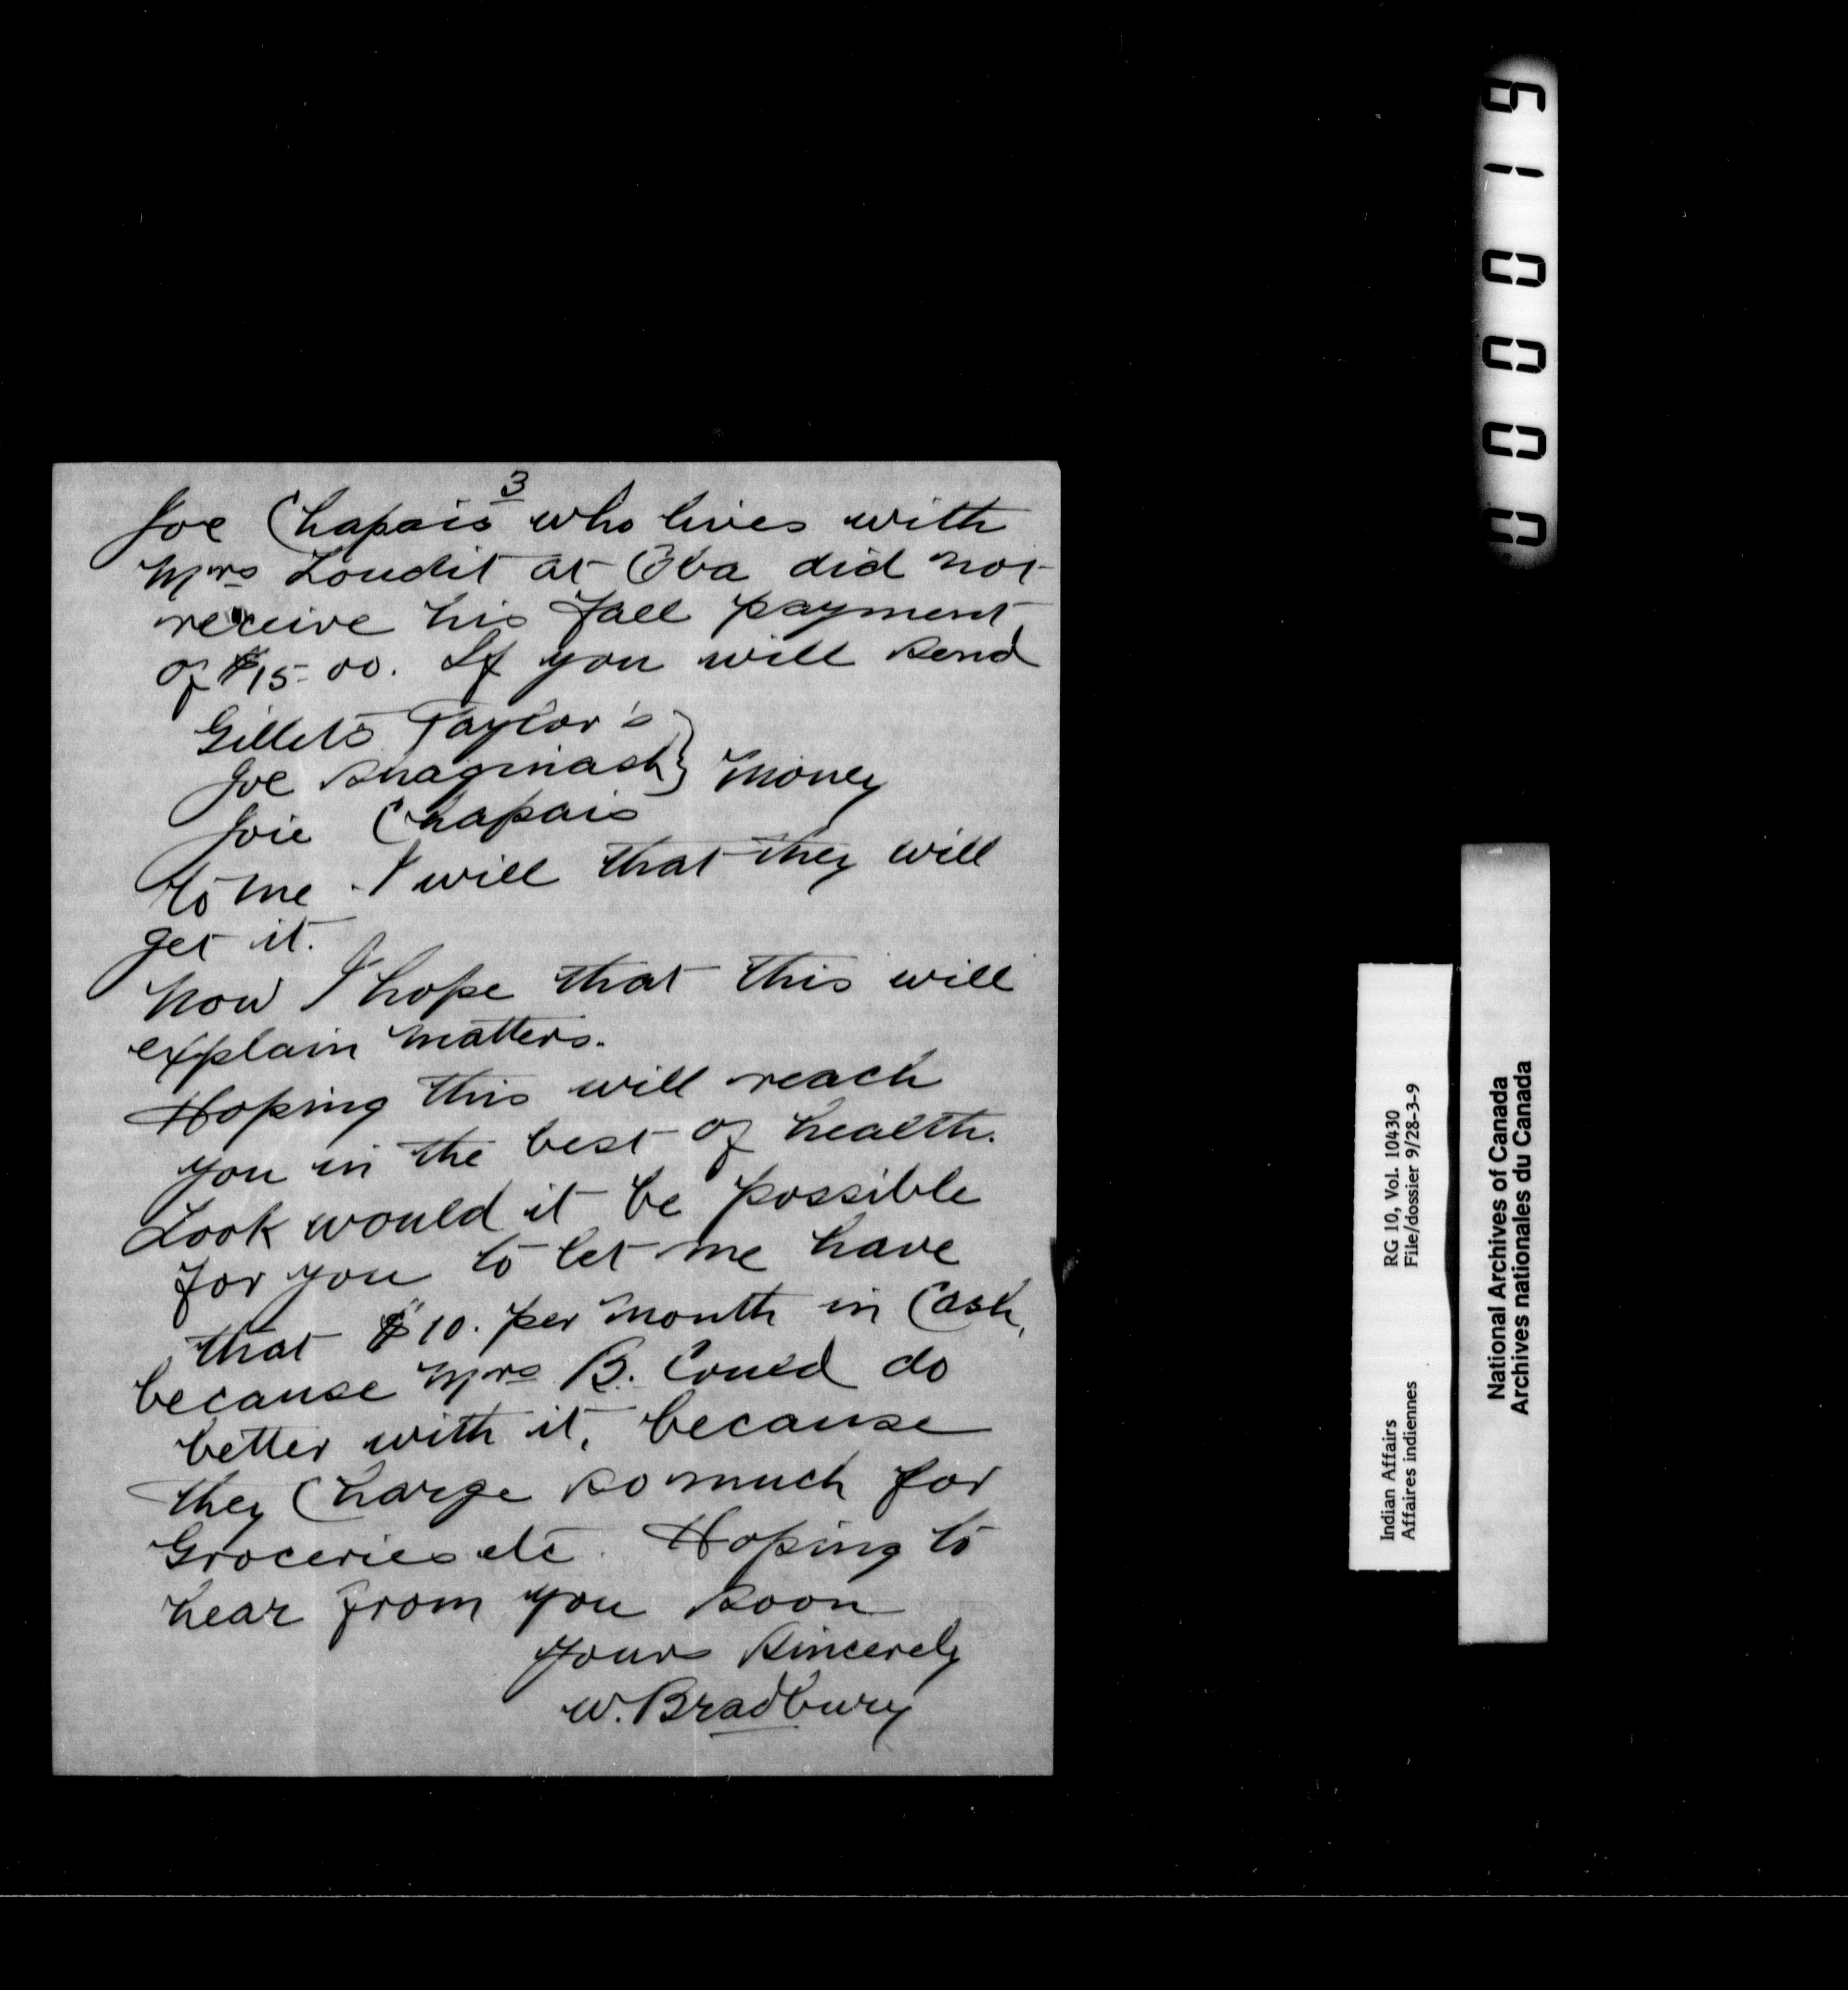 3
Joe Chapais who lives with
Mrs Loudit at Oba did not
receive his fall payment
of $15-00. If you will send
Gillets Taylor's
Joe Shaginash } money
Joie Chapais
to me I will that they will
get it.
Now I hope that this will
explain matters.
Hoping this will reach
you in the best of health.
Look would it be possible
for you to let me have
that $10. per month in Cash,
because Mrs B. Could do
better with it, because
they Charge so much for
Groceries etc. Hoping to
hear from you soon
yours Sincerely
W. Bradbury
000019
Indian Affairs RG 10, Vol. 10430
Affaires indiennes File/dossier 9/28-3-9
National Archives of Canada
Archives nationales du Canada